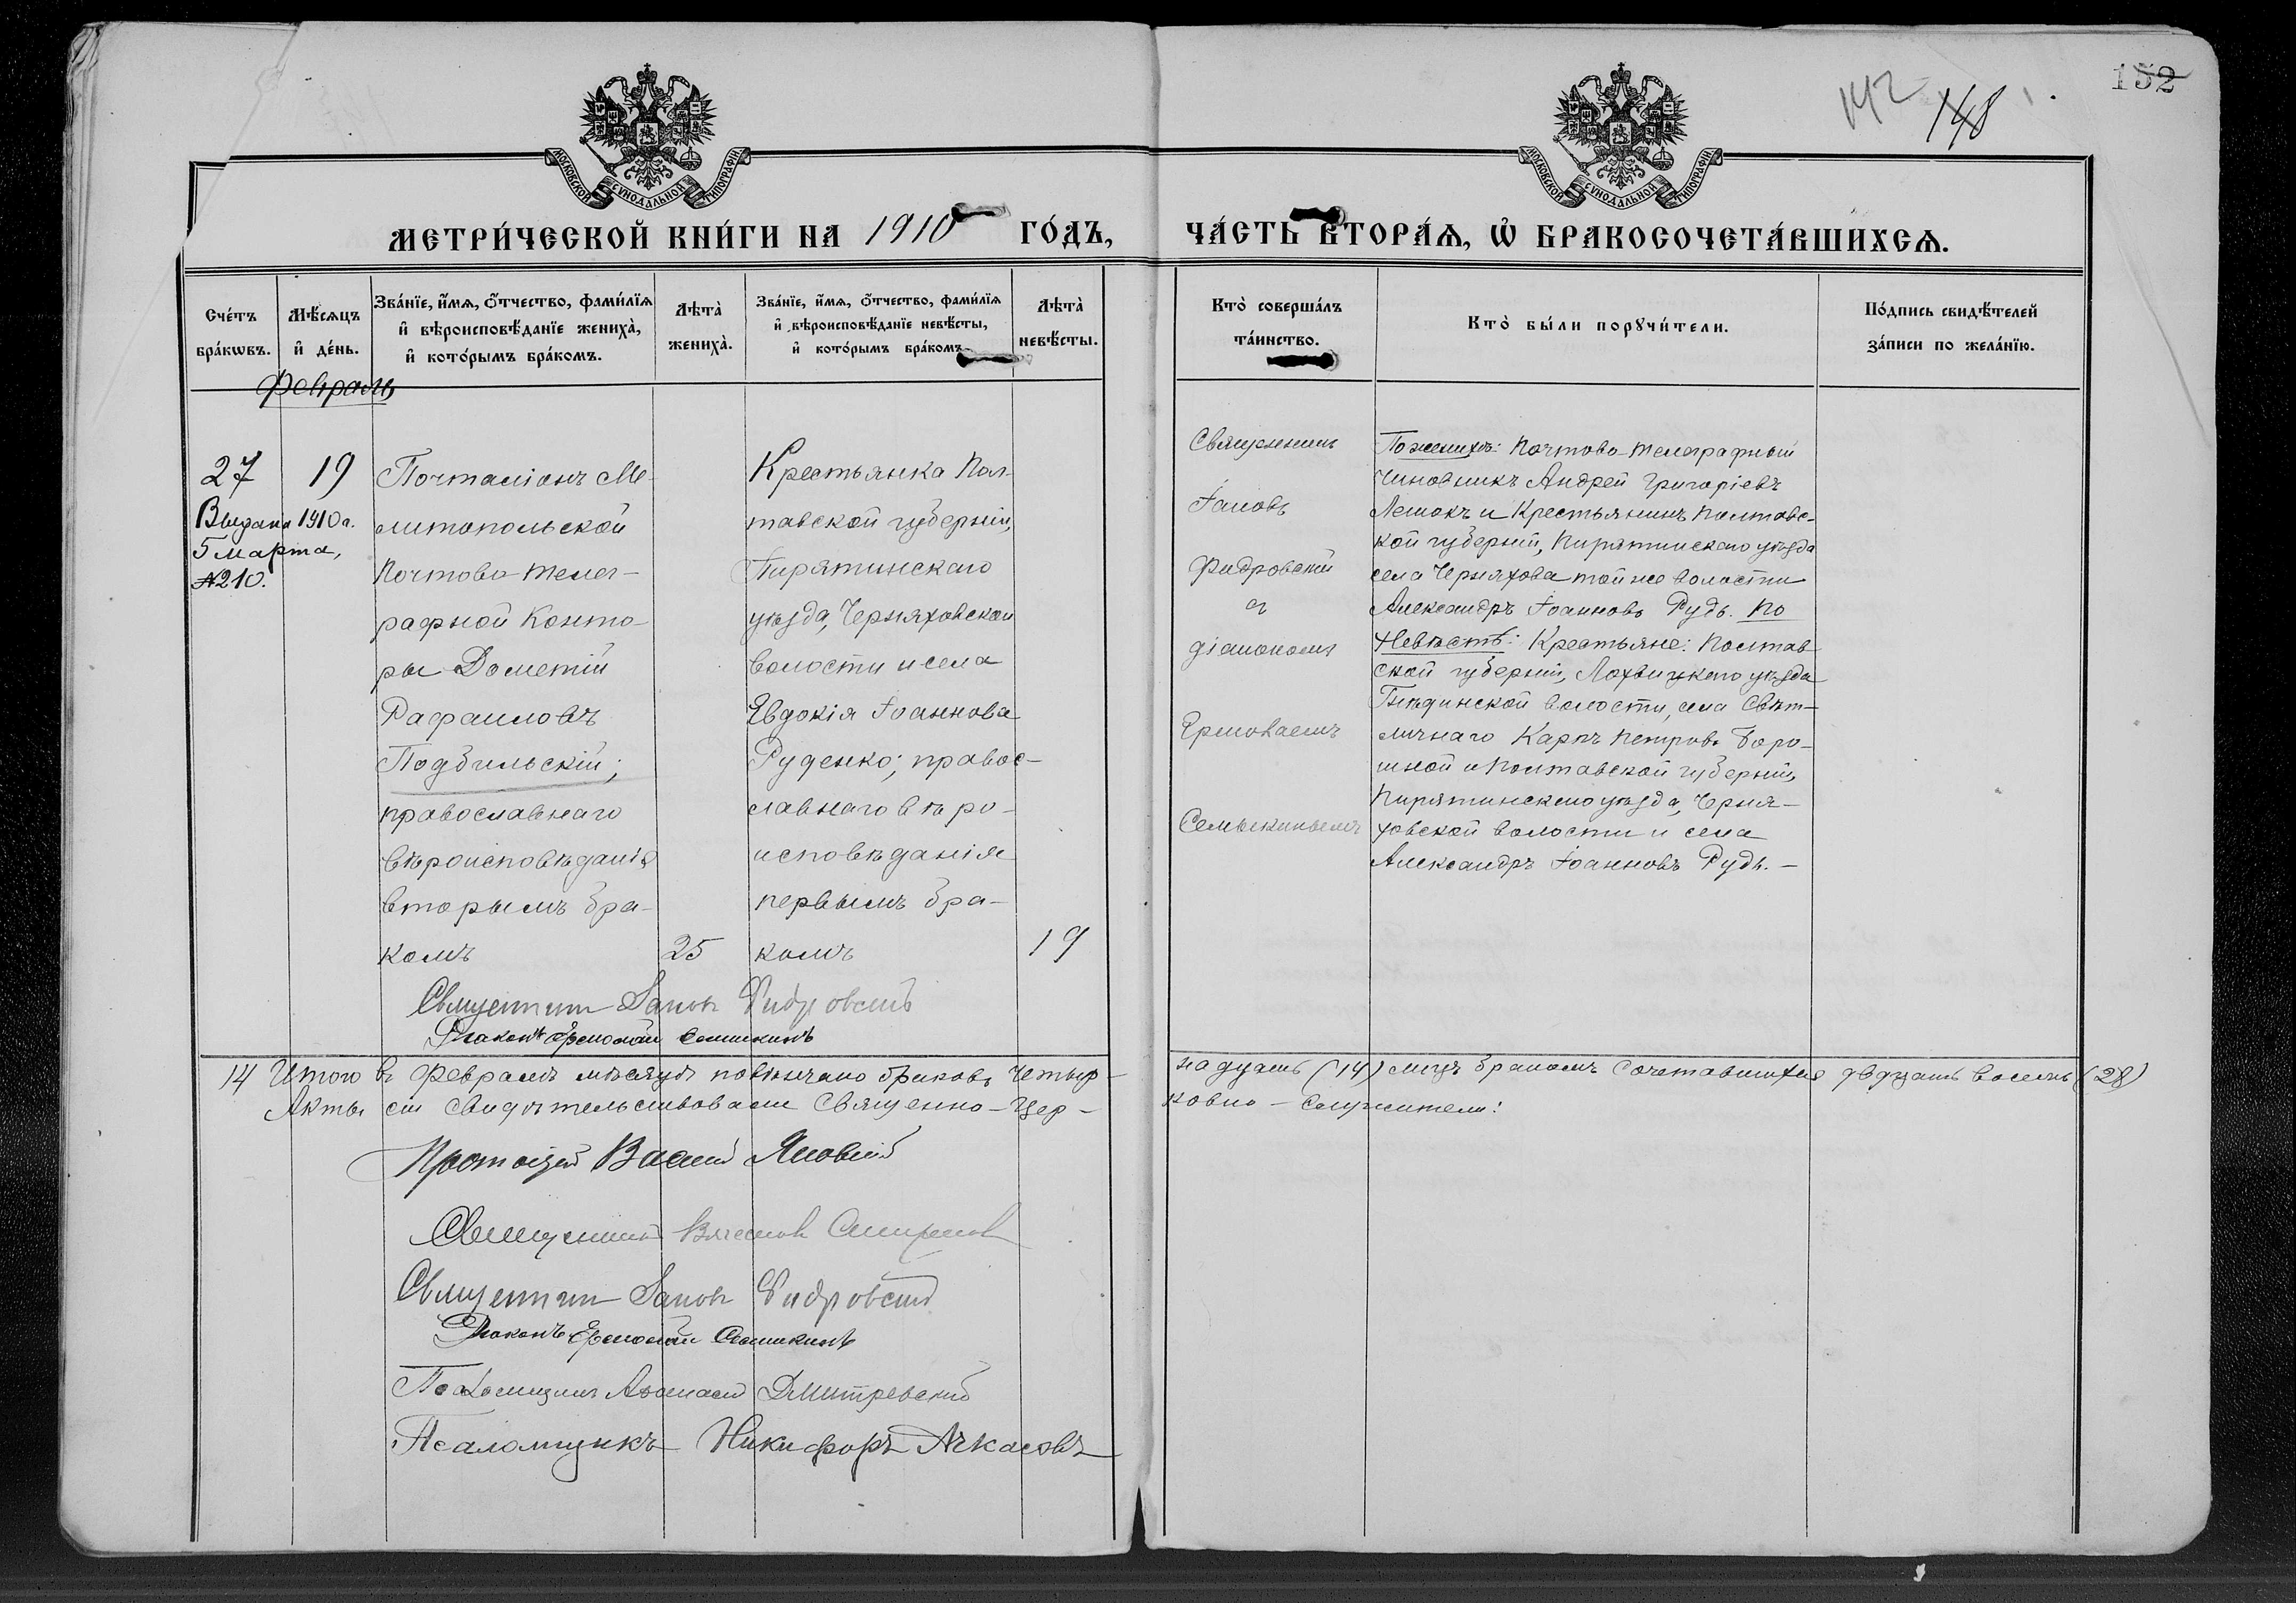 142
148
152
МОСКОВСКОЙ СѴНОДАЛЬНОЙ ТИПОГРАФІИ
МОСКОВСКОЙ СѴНОДАЛЬНОЙ ТИПОГРАФІИ
МЕТРИ́ЧЕСКОЙ КНИ́ГИ НА 1910 ГО́ДЪ,
ЧА́СТЬ ВТОРА́Ѧ, Ѡ҆ БРАКОСОЧЕТА́ВШИХСѦ.
Сче́тъ
бра́кѡвъ.
Мѣ́сѧцъ
и҆ де́нь.
Зва́нїе, и҆́мѧ, ѻ҆́тчество, фами́лїѧ
и҆ вѣроисповѣ́данїе жениха̀,
и҆ кото́рымъ бра́комъ.
Лѣта̀
жениха̀.
Зва́нїе, и҆́мѧ, ѻ҆́тчество, фами́лїѧ
и҆ вѣроисповѣ́данїе невѣ́сты,
и҆ кото́рымъ бра́комъ.
Лѣта̀
невѣ́сты.
Кто̀ соверша́лъ
та́инство.
Кто̀ бы́ли порꙋчи́тели.
По́дпись свидѣ́телей
за́писи по жела́нїю.
Февраль
27
Выдана 1910 г.
5 марта,
№210.
19
Почталіонъ Ме-
литопольской
Почтово-телег-
рафной Конто-
ры Дометій
Рафаиловъ
Подбильскій;
православнаго
вѣроисповѣданія
вторымъ бра-
комъ
25
Крестьянка Пол-
тавской губерніи,
Пирятинскаго
уѣзда, Черняховской
волости и села
Евдокія Іоаннова
Руденко; правос-
лавнаго вѣро-
исповѣданія
первымъ бра-
комъ
19
Священникъ
Іаковъ
Фидровскій
съ
діакономъ
Ермолаемъ
Семыкинымъ
По женихѣ: Почтово-телеграфный
Чиновникъ Андрей Григоріевъ
Лешокъ и Крестьянинъ Полтавс-
кой губерніи, Пирятинскаго уѣзда
села Черняхова той же волости
Александръ Іоанновъ Рудь. По
Невѣстѣ: Крестьяне: Полтав-
ской губерніи, Лохвицкаго уѣзда
Гнѣдинской волости, села Свѣт-
личнаго Карпъ Петровъ Боро-
шной и Полтавской губерніи,
Пирятинскаго уѣзда, Черня-
ховской волости и села
Александръ Іоанновъ Рудь. -
Священникъ Іаковъ Фидровскій
Діаконъ Ермолай Семыкинъ
14 Итого въ Февралѣ мѣсяцѣ повѣнчано браковъ четыр-
надцать (14) лицъ бракомъ сочетавшихся двадцать восемь (28)
Акты сіи свидѣтельствовали Священно-Цер-
ковно-Служители:
Протоіерей Василій
Священникъ Вячеслав
Священникъ Іаковъ Фидровскій
Діаконъ Ермолай Семыкинъ
Псаломщикъ Аѳанасій Дмитревскій
Псаломщикъ Никифоръ Ачкасовъ